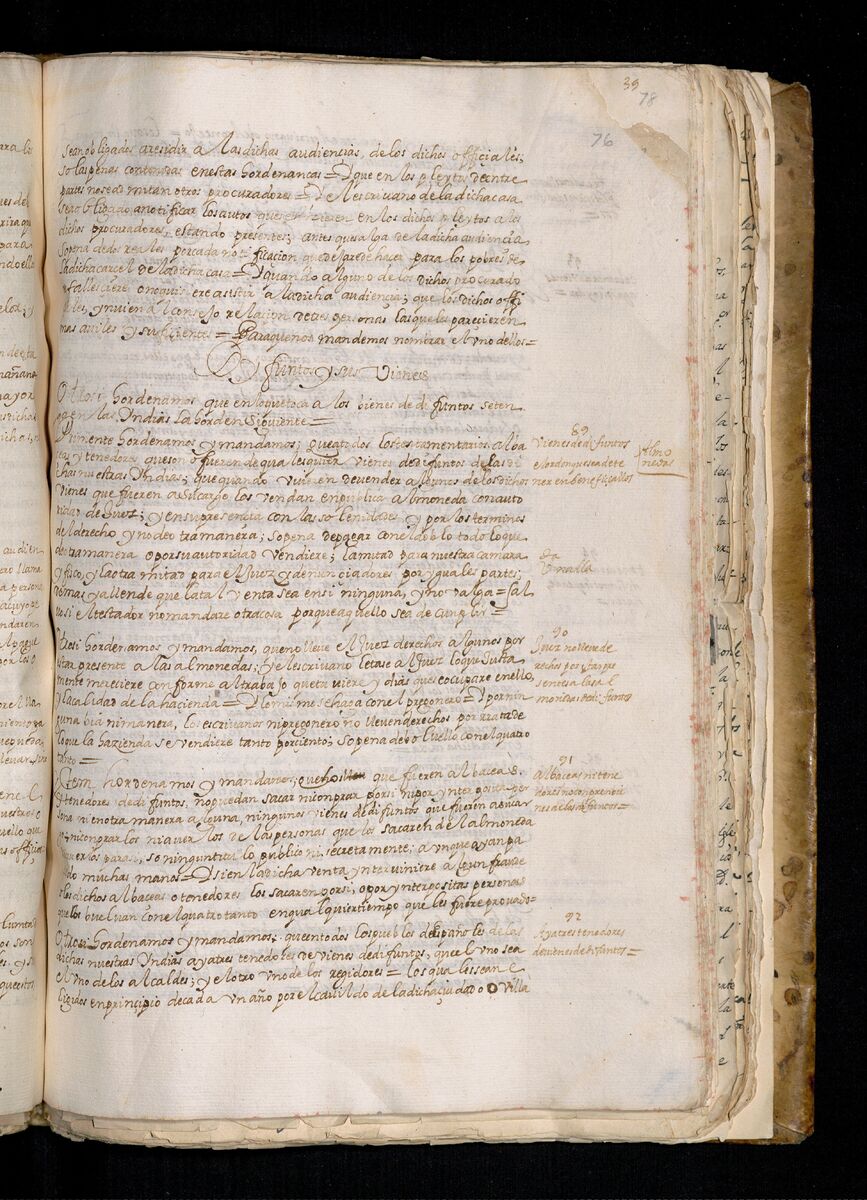 39
78
76
sean obligados aresidir a lasdichas audiencias, de los dichos officiales;
so las penas contenidas en estas hordenanças = Y que en los pleytos de entre
partes no se admitan otros procuradores = Y el escrivano de la dicha casa
sea obligado a notificar los autos que se hizieren en los dichos pleytos a los
dichos procuradores, estando presentes; antes que salga de la dicha audiencia
so pena de dos reales por cada notificacion que dexare de hacer para los pobres de
la dicha carcel de la dicha casa = Y quando alguno de los dichos procurado
falleciere o no quisiere asistir a la dicha audiencia; que los dichos offi
ales, ynvien al consejo relacion de tres personas las que les parecieren
mas aviles y suficientes = Para que nos mandemos nombrar el uno dellos =
Difuntos y sus Vienes
Otrosi hordenamos que en lo que toca a los bienes de difuntos se ten
ga en las Yndias la horden siguiente =
Primente hordenamos y mandamos; que a todos los testamentarios alba
ceas y tenedores que son o fueren de qualesquier vienes de difuntos de las di
chas nuestras Yndias; que quando uvieren de vender algunos de los dichos
vienes que fueren a su cargo los vendan en publica almoneda con auto
ridad de Juez; y en su presencia con las solenidades y por los terminos
del derecho y no de otra manera; so pena de pagar con el doblo todo lo que
de otra manera o por su autoridad vendiere; la mitad para nuestra camara
y fisco, y la otra mitad para el Juez y denunciadores por yguales partes;
demas y allende que la tal venta sea en si ninguna, y no valga = sal
vo si el testador no mandare otra cosa porque aquello se a de cumplir =
Otrosi hordenamos y mandamos, que no lleve el Juez derechos algunos por
estar presente a las almonedas; y el escrivano le tase el Juez lo que Justa
mente mereciere conforme al trabajo que tuviere y dias que se ocupare en ello,
y la calidad de la hacienda = Y lo mismo se haga con el pregonero = Y por nin
guna via ni manera, los escrivanos ni pregonero no lleven derechos por rrata de
lo que la hazienda se vendiere tanto por ciento; so pena de bolvello con el quatro
tanto =
Ytem hordenamos y mandamos; que los que fueren albaceas
o tenedores de difuntos, no puedan sacar ni comprar por si ni por ynterposita per
sona ni en otra manera alguna, ningunos vienes de difuntos que fueren a su car
go, ni comprarlos ni averlos de las personas que los sacaren del almoneda
so ningun titulo publico ni secretamente; aunque ayan pa
sado muchas manos = Y si en la dicha venta ynterviniere algun fraude
o los dichos albaceas o tenedores los sacaren por si, o por ynterpositas personas
que los buelvan con el quatro tanto en qualquier tiempo que les fuere provado =
Otrosi hordenamos y mandamos; que en todos los pueblos de españoles de las
dichas nuestras Yndias aya tres tenedores de vienes de difuntos, que el uno sea
el uno de los alcaldes; y el otro uno de los regidores = los quales sean e
ligidos en principio de cada un año por el cavildo de la dicha ciudad o Villa
89
Vienes de difuntos
la horden que se a de te
ner en beneficiallos
Almo
nedas
90
Juez no lleve de
rechos por estar pre
sente a las al
monedas de difuntos
91
Albaceas ni tene
dores no compren vie
nes de los difuntos =
92
Aya tres tenedores
de vienes de difuntos =